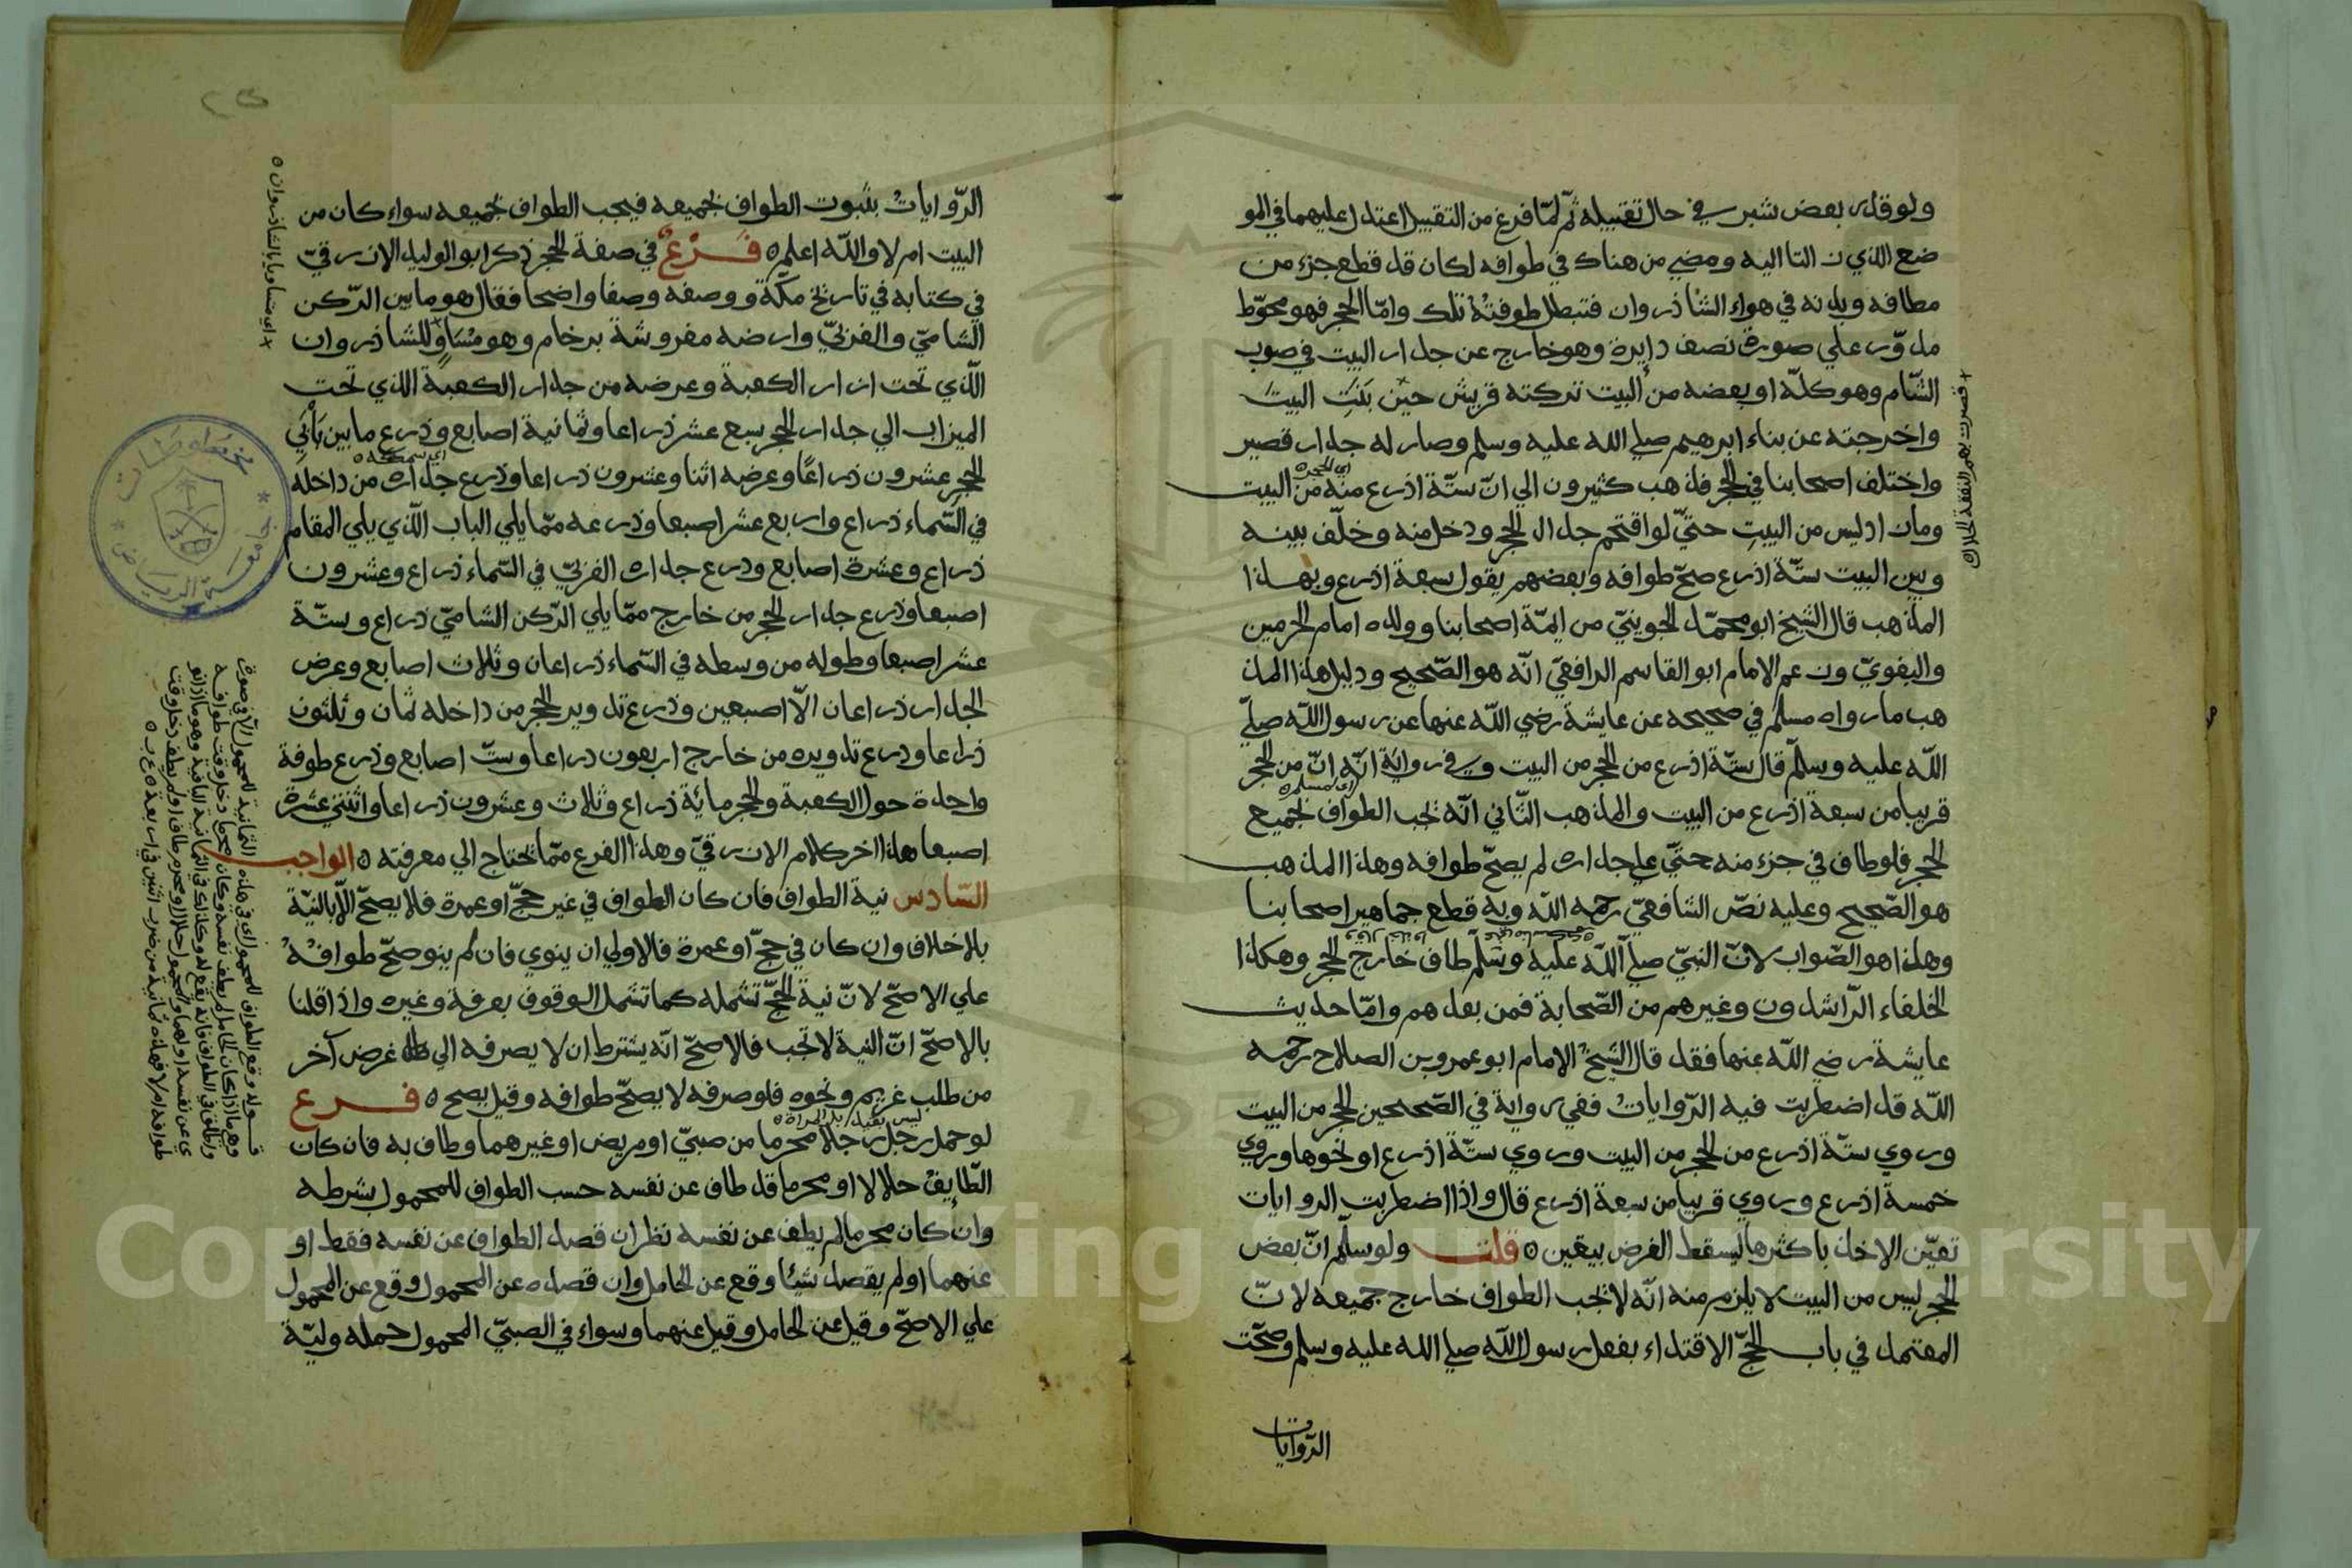 ولو قدر بعض شبر في حال تقبيله ثم لمّا فرغ من التقبيل اعتدل عليهما في المو
ضع الذي زالتا اليه ومضي من هناك في طوافه لكان قد قطع جزء من
مطافه وبدنه في هواء الشاذروان فتبطل طوفته تلك وامّا الحجر فهو محوّط
مدوّر علي صورة نصف دايرة وهو خارج عن جدار البيت في صوب
الشّام وهو كلّه او بعضه من البيت تركته قريش حين بَنَتِ البيتَ
واخرجته عن بناء ابرهيم صلي الله عليه وسلم وصار له جدار قصير
واختلف اصحابنا في الحجر فذهب كثيرون الي انّ ستّة اذرع منه من البيت
اي الحجر
ومازاد ليس من البيتِ حتيّ لو اقتحم جدار الحجر ودخل منه وخلّف بينه
وبين البيت ستّة اذرع صحّ طوافه وبعضهم يقول سبعة اذرع وبهذا
المذهب قال الشيخ ابو محمّد الجوينيّ من ايمّة اصحابنا وولده امام الحرمين
والبغويّ وزعم الامام ابو القاسم الرافعيّ انّه هو الصّحيح ودليل هذا المذ
هب ما رواه مسلم في صحيحه عن عايشة رضي اللّه عنها عن رسول اللّه صليّ
اللّه عليه وسلّم قال ستّة اذرع من الحجر من البيت وفي رواية انّه انّ من الحجر
اي لمسلم
قريبا من سبعة اذرع من البيت والمذهب الثّاني انّه تجب الطواف بجميع
الحجر فلو طاف في جزء منه حتيّ علي جداره لم يصحّ طوافه وهذا المذهب
هو الصّحيح وعليه نصّ الشافعيّ رحمه اللّه وبه قطع جماهير اصحابنا
وهذا هو الصّواب لانّ النبيّ صلّي اللّه عليه وسّلم طاف خارج الحجر وهكذا
الخلفاء الرّاشدون وغيرهم من الصّحابة فمن بعدهم وامّا حديث
عايشة رضي اللّه عنها فقد قال الشيخ الامام ابو عمرو بن الصلاح رحمه
اللّه قد اضطربت فيه الرّوايات ففي رواية في الصّحيحين الحجر من البيت
وروي ستّة اذرع من الحجر من البيت وروي ستّة اذرع او نحوها وروي
خمسة اذرع وروي قريبا من سبعة اذرع قال واذا اضطربت الروايات
تعيّن الاخذ باكثرها ليسقط الفرض بيقين قلت ولو سلّم انّ بعض
الحجر ليس من البيت لا يلزم منه انّه لا تجب الطواف خارج جميعه لانّ
المعتمد في باب الحجّ الاقتداء بفعل رسول اللّه صلي الله عليه وسلم وصحّت
الرّوايات
قصرت بهم النفقة الحلال
الرّوايات بثبوت الطواف بجميعه فيجب الطواف بجميعه سواء كان من
البيت ام لا واللّه اعلم فَرْعٌ في صفة الحجر ذكر ابو الوليد الازرقيّ
في كتابه في تاريخ مكّة ووصفه وصفا واضحا فقال هو ما بين الرّكن
الشاميّ والغربيّ وارضه مفروشة برخام وهو مُسَاوٍ للشاذروان
الّذي تحت ازار الكعبة وعرضه من جدار الكعبة الذي تحت
الميزاب الي جدار الحجر سبع عشر ذراعا وثمانية اصابع وذرع ما بين بَابَيِ
الحجر عشرون ذراعًا وعرضه اثنا وعشرون ذراعا وذرع جداره من داخله
اي سمكه
في السّماء ذراع واربع عشر اصبعا وذرعه ممّا يلي الباب الّذي يلي المقام
ذراع وعشرة اصابع وذرع جداره الغربيّ في السّماء ذراع وعشرون
اصبعا وذرع جدار الحجر من خارج ممّا يلي الرّكن الشاميّ ذراع وستّة
عشر اصبعا وطوله من وسطه في السّماء ذراعان وثلاث اصابع وعرض
الجدار ذراعان الّا اصبعين وذرع تدوير الحجر من داخله ثمان وثلثون
ذراعا وذرع تدويره من خارج اربعون ذراعا وستّ اصابع وذرع طوفة
واحدة حول الكعبة والحجر مائة ذراع وثلاث وعشرون ذراعا واثنتي عشرة
اصبعا هذا اخر كلام الازرقيّ وهذا الفرع ممّا يحتاج الي معرفته الواجب
السّادس نية الطواف فان كان الطواف في غير حجّ او عمرة فلا يصحّ الّا بالنيّة
بلا خلاف وان كان في حجّ او عمرة فالاولي ان ينوي فان لم ينو صحّ طوافه
علي الاصحّ لانّ نية الحجّ تشمله كما تشمل الوقوف بعرفة وغيره واذا قلنا
بالاصحّ انّ النية لا تجب فالاصحّ انّه يشترط ان لا يصرفه الي غرض آخر
من طلب غريم ونحوه فلو صرفه لا يصحّ طوافه وقيل يصح فرع
ليس بقيد بل المراة
لو حمل رجل رجلا محرما من صبيّ او مريض او غيرهما وطاف به فان كان
الطّايف حلالا او محرما قد طاف عن نفسه حسب الطواف للمحمول بشرطه
وان كان محرما لم يطف عن نفسه نظر ان قصد الطواف عن نفسه فقط او
عنهما او لم يقصد شيئا وقع عن الحامل وان قصده عن المحمول وقع عن المحمول
علي الاصحّ وقيل عن الحامل وقيل عنهما وسواء في الصبيّ المحمول حمله وليّه
اي مساويا بالشاذروان
Copyright © King Saud University